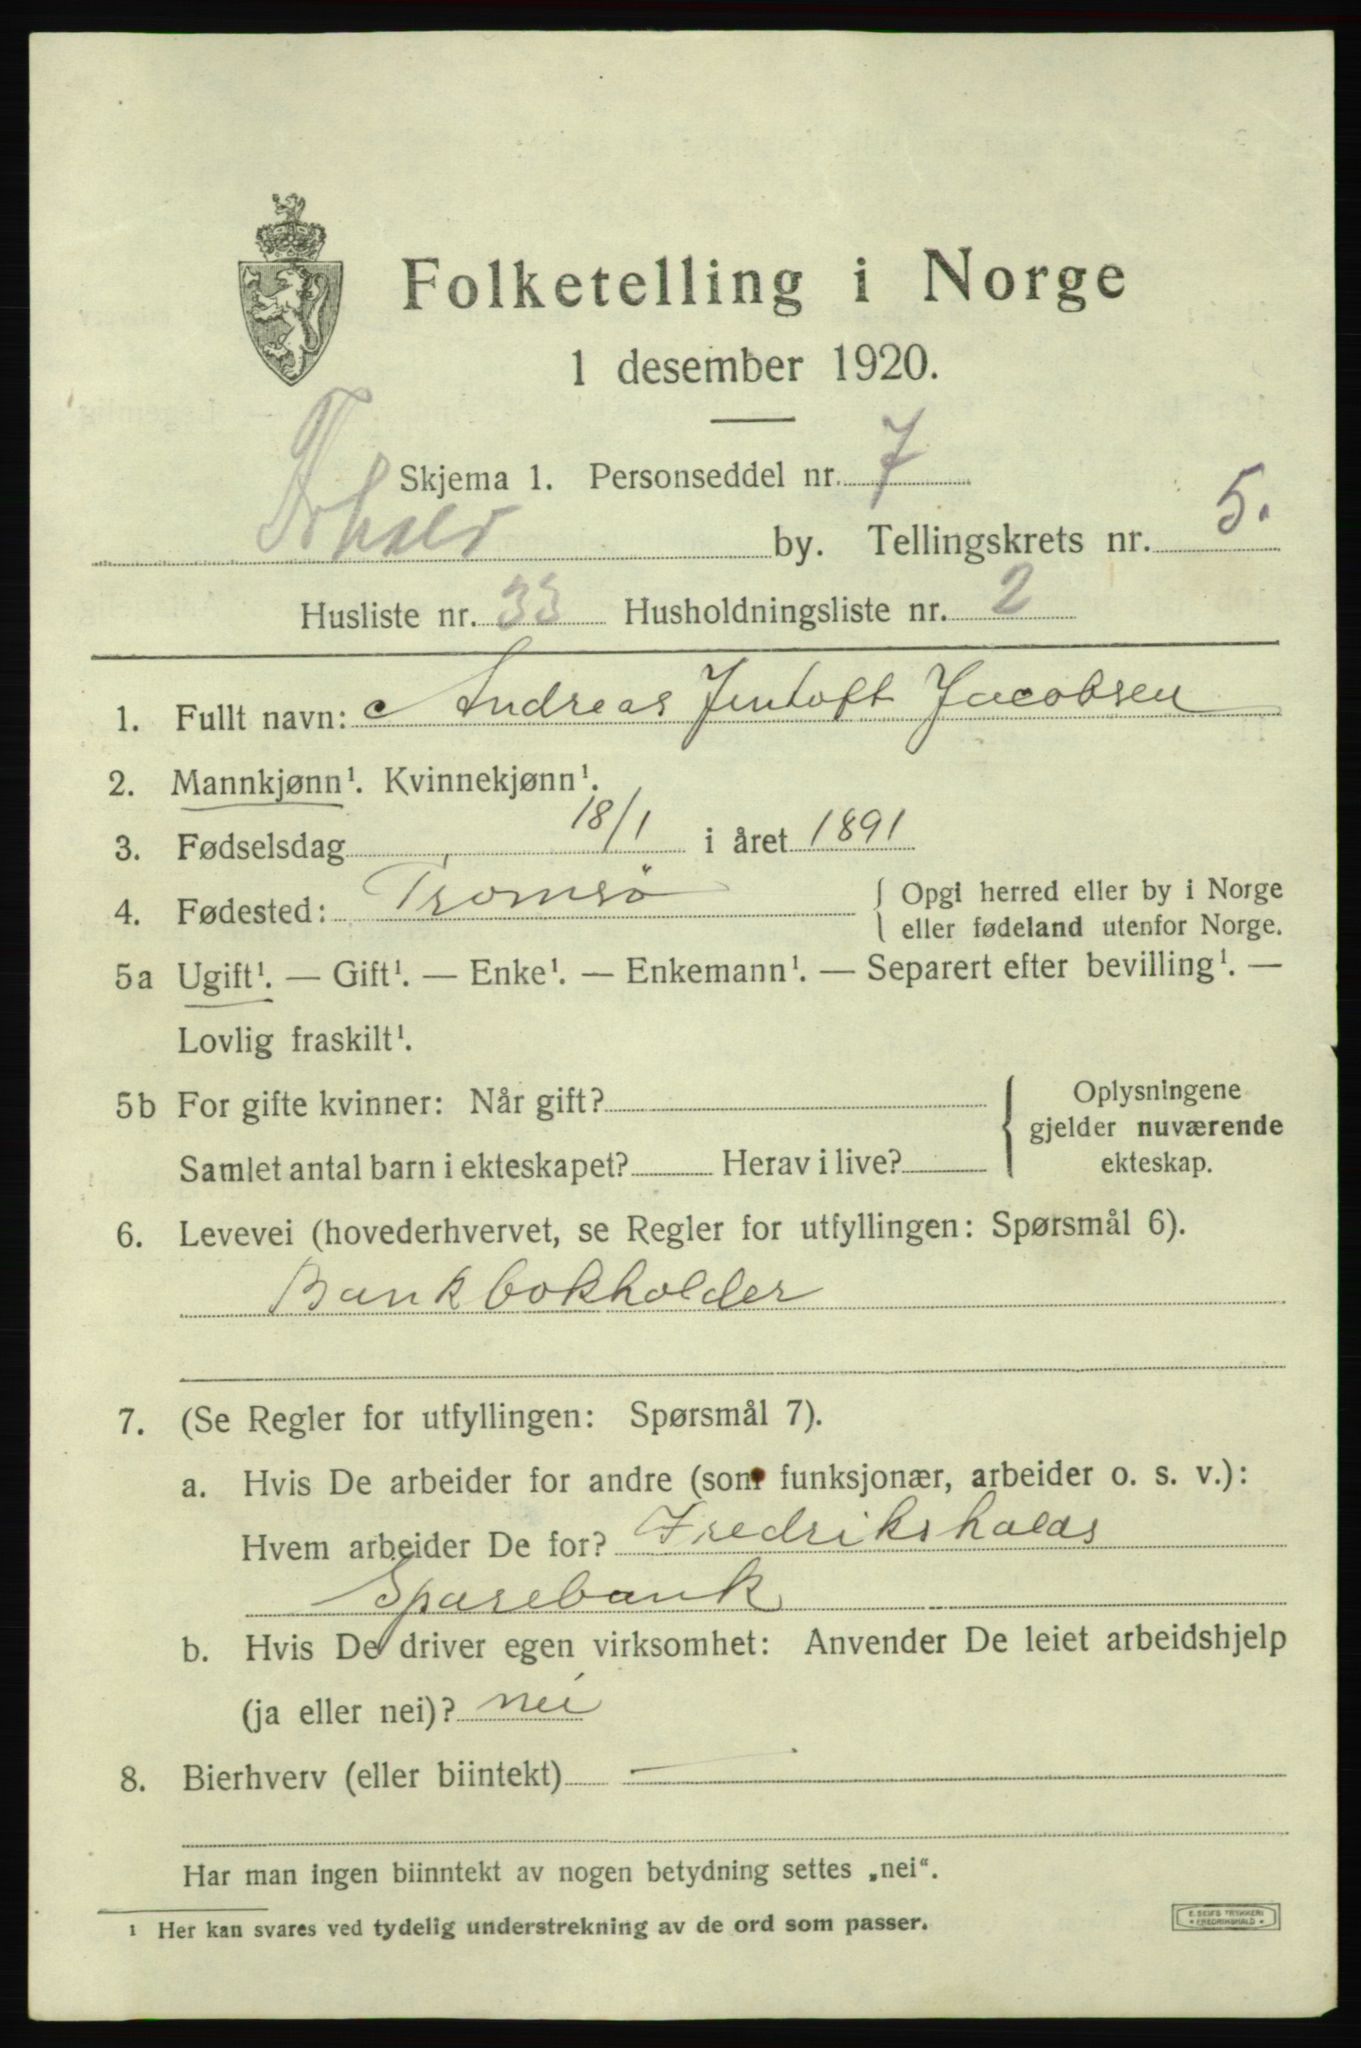 Folketelling i Norge
1 desember 1920.
Skjema 1. Personseddel nr. 7
Frhald by. Tellingskrets nr. 5.
Husliste nr. 33 Husholdningsliste nr. 2
1. Fullt navn: Andreas Jentoft Jacobsen
2. Mannkjønn¹. Kvinnekjønn¹.
3. Fødselsdag 18/1 i året 1891
4. Fødested: Tromsö { Opgi herred eller by i Norge
eller fødeland utenfor Norge.
5a Ugift¹. — Gift¹. — Enke¹. — Enkemann¹. — Separert efter bevilling¹. —
Lovlig fraskilt¹.
5b For gifte kvinner: Når gift?
Samlet antal barn i ekteskapet? Herav i live?
{ Oplysningene
gjelder nuværende
ekteskap.
6. Levevei (hovederhvervet, se Regler for utfyllingen: Spørsmål 6).
Bankbokholder
7. (Se Regler for utfyllingen: Spørsmål 7).
a. Hvis De arbeider for andre (som funksjonær, arbeider o. s. v.):
Hvem arbeider De for? Fredrikshalds
Sparebank
b. Hvis De driver egen virksomhet: Anvender De leiet arbeidshjelp
(ja eller nei)? nei
8. Bierhverv (eller biintekt) —
Har man ingen biinntekt av nogen betydning settes „nei“.
¹ Her kan svares ved tydelig understrekning av de ord som passer.
E. SEMS TRYKKERI
• FREDRIKSHALD •